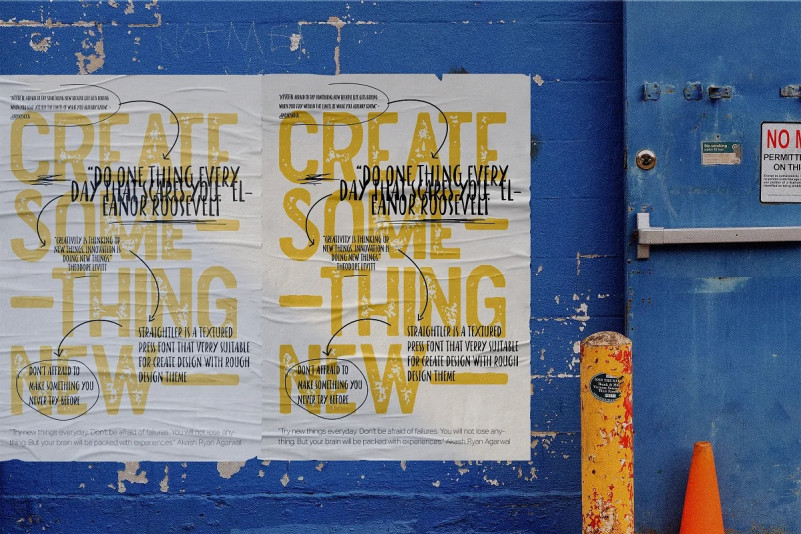 NOT ME
"NEVER BE AFRAID TO TRY SOMETHING NEW BECAUSE LIFE GETS BORING
WHEN YOU STAY WITHIN THE LIMITS OF WHAT YOU ALREADY KNOW"
CREATE
SOME
-THING
NEW-
"DO ONE THING EVERY
DAY THAT SCARES YOU." EL-
EANOR ROOSEVELT
"CREATIVITY IS THINKING UP
NEW THINGS. INNOVATION IS
DOING NEW THINGS"
THEODORE LEVITT
STRAIGHTLER IS A TEXTURED
PRESS FONT THAT VERRY SUITABLE
FOR CREATE DESIGN WITH ROUGH
DESIGN THEME
DON'T AFFRAID TO
MAKE SOMETHING YOU
NEVER TRY BEFORE
"Try new things everyday. Don't be afraid of failures. You will not lose any-
thing. But your brain will be packed with experiences." Akash Ryan Agarwal
"NEVER BE AFRAID TO TRY SOMETHING NEW BECAUSE LIFE GETS BORING
WHEN YOU STAY WITHIN THE LIMITS OF WHAT YOU ALREADY KNOW"
CREATE
SOME-
-THING
NEW-
"DO ONE THING EVERY
DAY THAT SCARES YOU." EL-
EANOR ROOSEVELT
"CREATIVITY IS THINKING UP
NEW THINGS. INNOVATION IS
DOING NEW THINGS"
THEODORE LEVITT
STRAIGHTLER IS A TEXTURED
PRESS FONT THAT VERRY SUITABLE
FOR CREATE DESIGN WITH ROUGH
DESIGN THEME
DON'T AFFRAID TO
MAKE SOMETHING YOU
NEVER TRY BEFORE
"Try new things everyday. Don't be afraid of failures. You will not lose any-
thing. But your brain will be packed with experiences." Akash Ryan Agarwal
No smoking
NO M
PERMITTE
ON TH